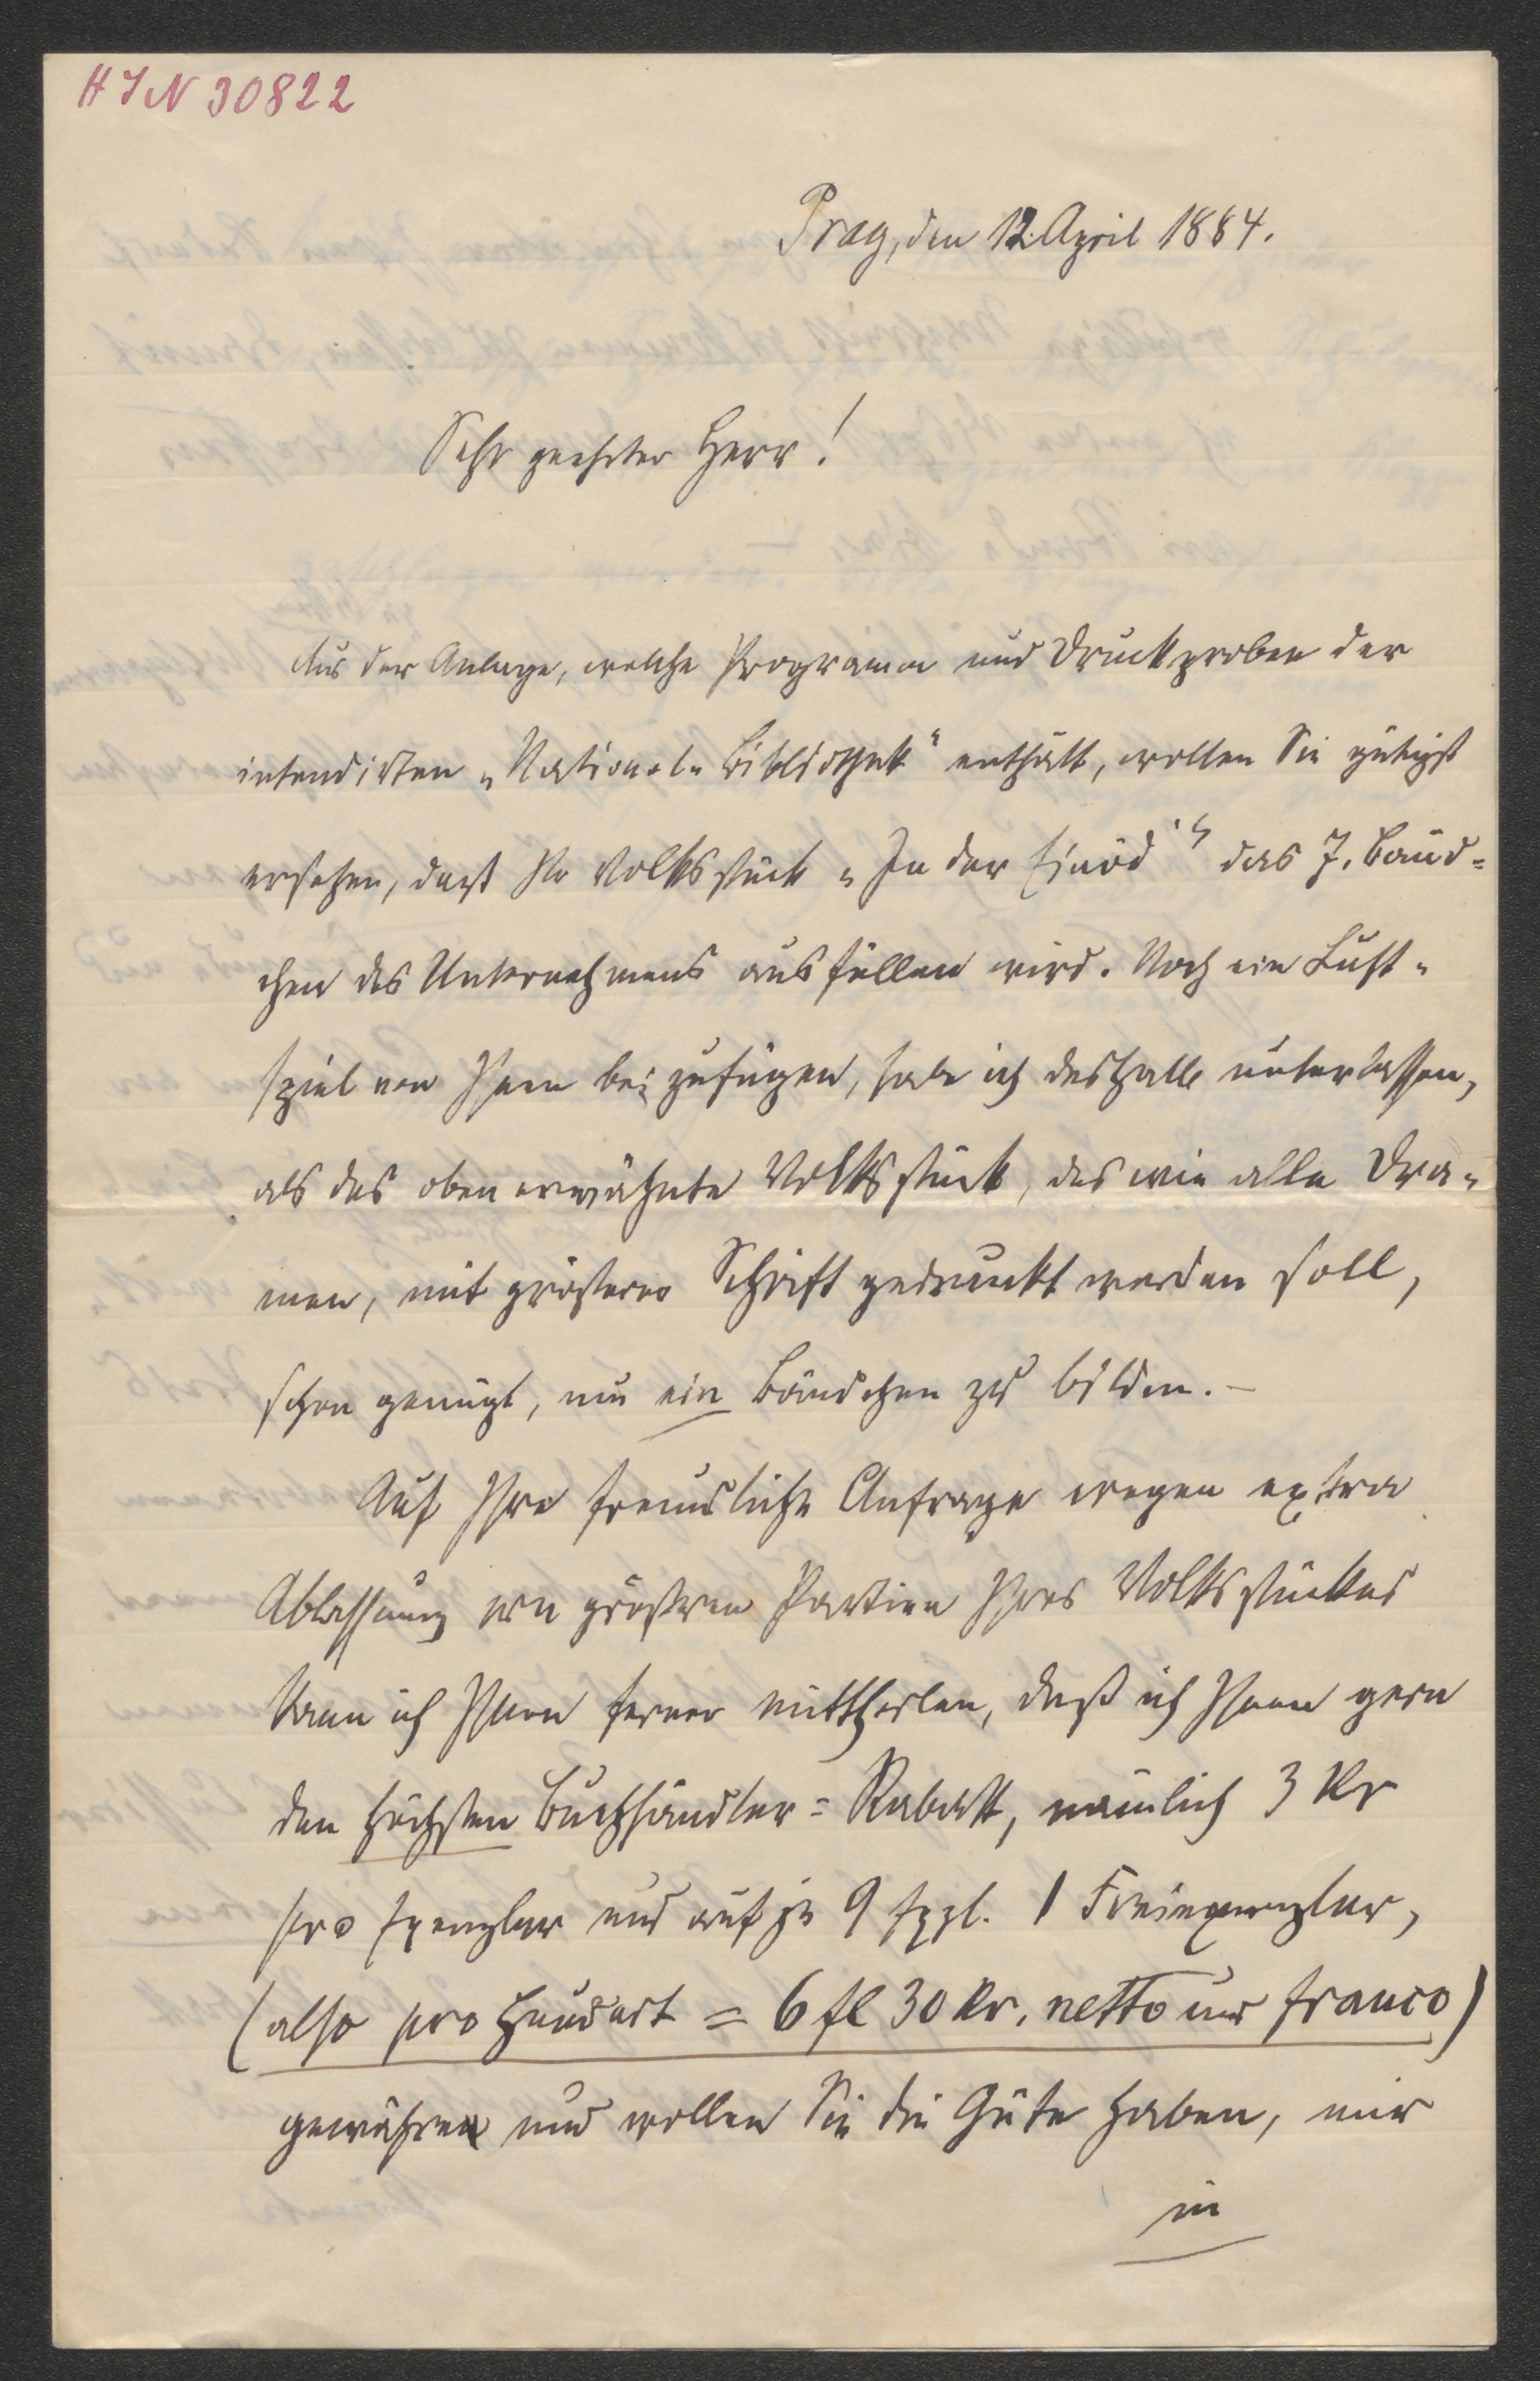 HIN 30822
Prag, den 12. April 1884.
Sehr geehrter Herr!
Aus der Anlage, welche Programm und Druckproben der
intendirten „National-Bibliothek" enthält, wollen Sie gütigst
ersehen, daß Ihr Volksstück „In der Einöd'" das 7. Bänd=
chen des Unternehmens ausfüllen wird. Noch ein Lust-
spiel von Ihnen beizufügen, habe ich deshalb unterlassen,
als das oben erwähnte Volksstück, das wie alle Dra-
men, mit größerer Schrift gedruckt werden soll,
schon genügt, um ein Bändchen zu bilden. –
Auf Ihre freundliche Anfrage wegen extra
Ablassung von größeren Partien Ihres Volksstückes
kann ich Ihnen ferner mittheilen, daß ich Ihnen gern
den höchsten Buchhändler=Rabatt, nämlich 3 Kr
pro Exemplar und auf je 9 Expl. 1 Freiexemplar,
(also pro Hundert = 6 fl 30 Kr. netto und franco)
gewähren und wollen Sie die Güte haben, mir
in